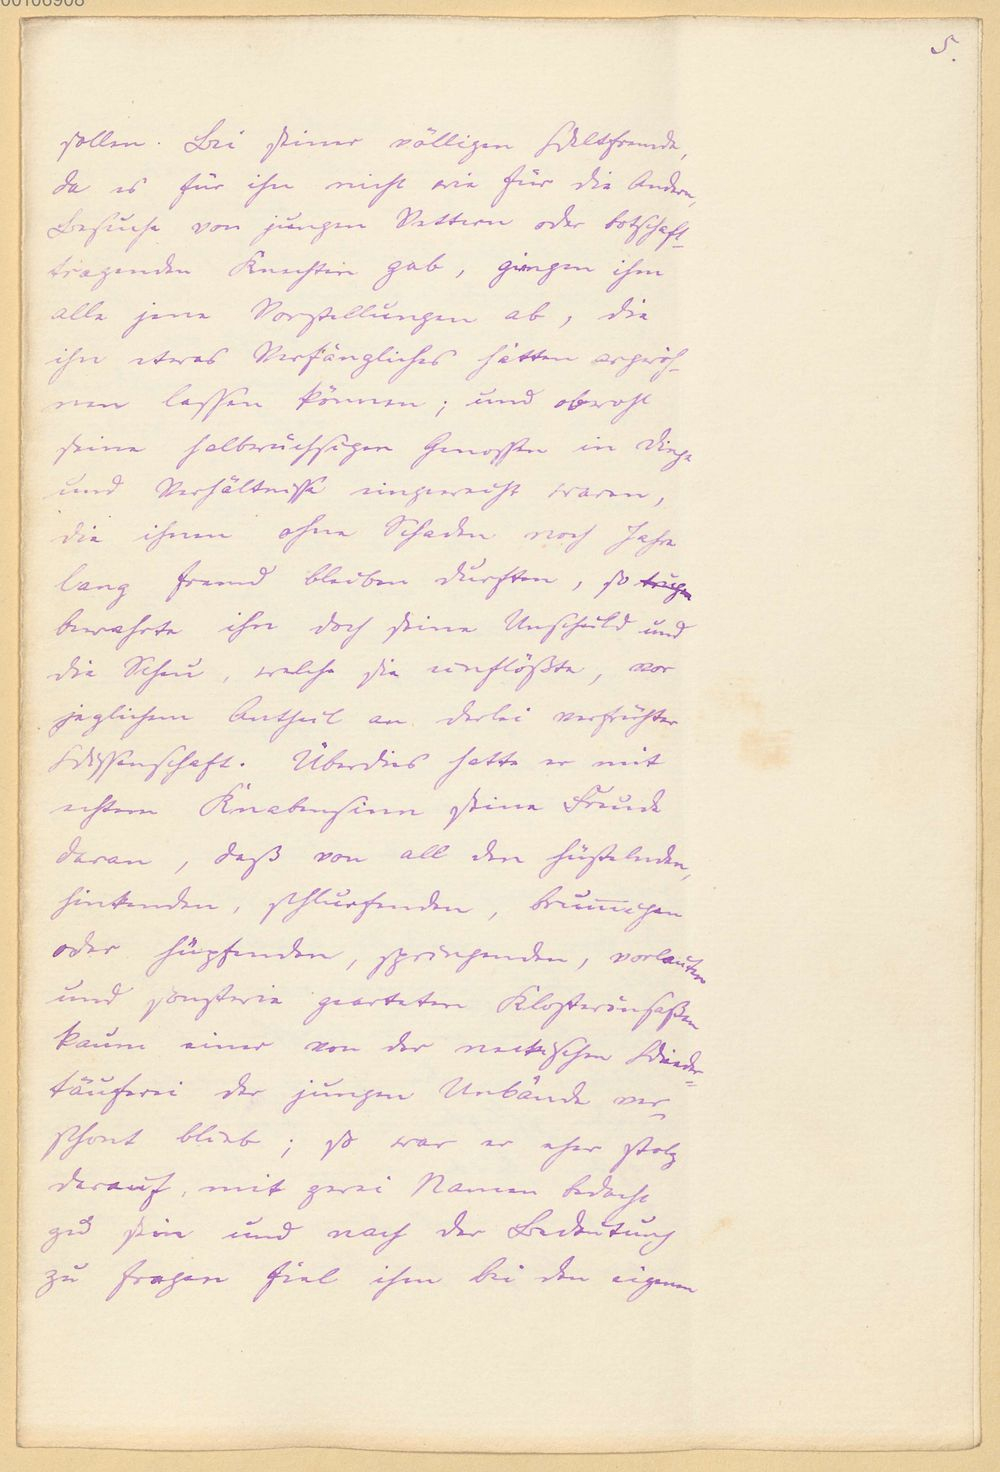 00106908
5.
sollen. Bei seiner völligen Weltfremde,
da es für ihn nicht wie für die Andern,
Besuche von jungen Vettern oder botschaft-
tragenden Knechten gab, gingen ihm
alle jene Vorstellungen ab, die
ihn etwas Verfängliches hätten argwöh-
nen lassen können; und obwohl
seine halbwüchsigen Genossen in Dinge
und Verhältnisse eingeweiht waren,
die ihnen ohne Schaden noch Jahre
lang fremd bleiben durften, so
bewahrte ihn doch seine Unschuld und
die Scheu, welche sie einflößte, vor
jeglichem Antheil an derlei verfrühter
Wissenschaft. Überdies hatte er mit
echtem Knabensinn seine Freude
daran, daß von all den hüstelnden,
hinkenden, schlurfenden, brummigen
oder hüpfenden, springenden, vorlauten
und sonstwie gearteten Klosterinsaßen
kaum einer von der neckischen Wieder-
täuferei der jungen Unbände ver-
schont blieb; so war er eher stolz
darauf, mit zwei Namen bedacht
zu sein und nach der Bedeutung
zu fragen fiel ihm bei den eigenen